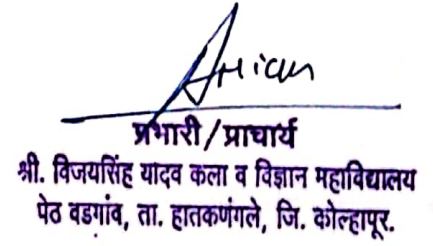 प्रभारी/प्राचार्य
श्री. विजयसिंह यादव कला व विज्ञान महाविद्यालय
पेठ वडगांव, ता. हातकणंगले, जि. कोल्हापूर.